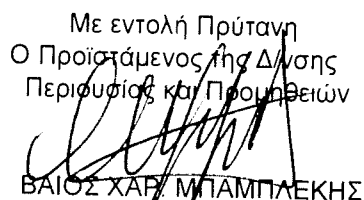 Με εντολή Πρύτανη
Ο Προϊστάμενος της Δ/νσης
Περιουσίας και Προμηθειών
ΒΑΙΟΣ ΧΑΡ. ΜΠΑΜΠΛΕΚΗΣ